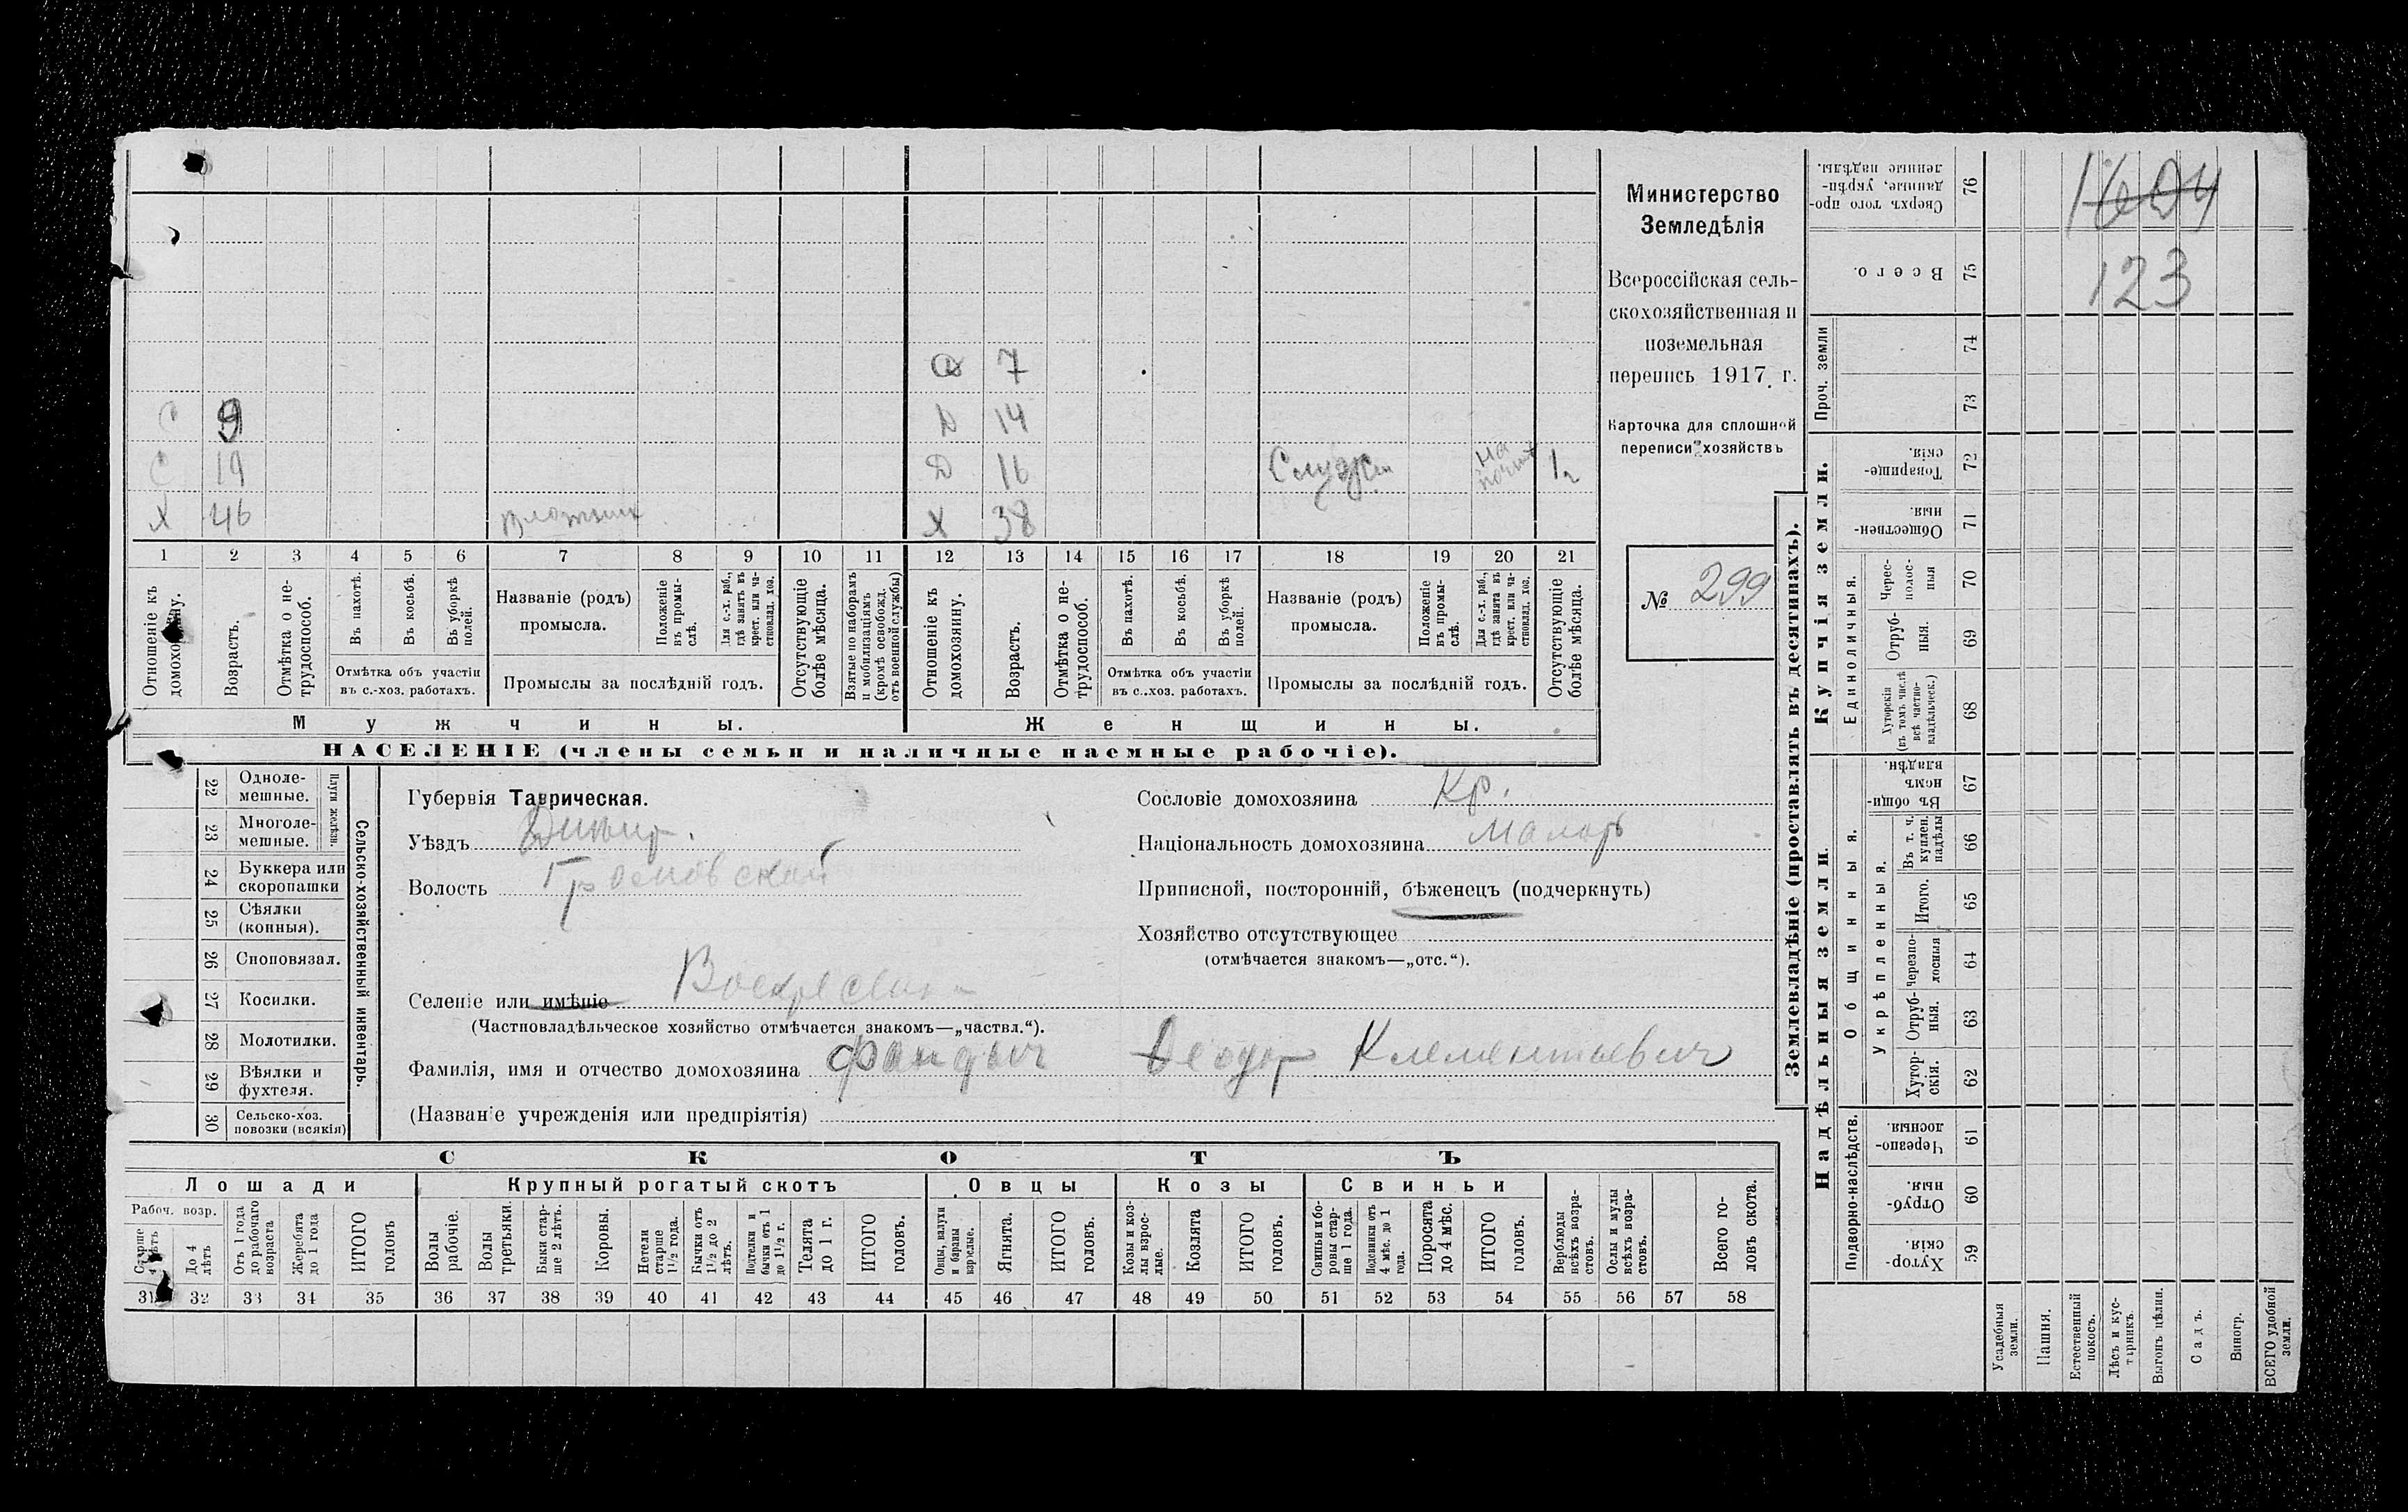 Министерство
Земледѣлія
Всероссійская сель-
скохозяйственная и
поземельная
перепись 1917 г.
Карточка для сплошной
переписи хозяйствъ
№ 299
1604
123
О 7
С 9 Д 14
С 19 Д 16 Служ на почт 12
Х 46 Х 38
1 2 3 4 5 6 7 8 9 10 11 12 13 14 15 16 17 18 19 20 21
Отношеніе къ домохозяину.
Возрастъ.
Отмѣтка о не-
трудоспособ.
Въ пахотѣ.
Въ косьбѣ.
Въ уборкѣ
полей.
Отмѣтка объ участіи
въ с.-хоз. работахъ.
Названіе (родъ)
промысла.
Положеніе
въ промы-
слѣ.
Для с.-х. раб.,
гдѣ занятъ въ
крест. или ча-
стновлад. хоз.
Промыслы за послѣдній годъ.
Отсутствующіе
болѣе мѣсяца.
Взятые по наборамъ
и мобилизаціямъ
(кромѣ освобожд.
отъ военной службы)
Отношеніе къ
домохозяину.
Возрастъ.
Отмѣтка о не-
трудоспособ.
Въ пахотѣ.
Въ косьбѣ.
Въ уборкѣ
полей.
Отмѣтка объ участіи
въ с.-хоз. работахъ.
Названіе (родъ)
промысла.
Положеніе
въ промы-
слѣ.
Для с.-х. раб.,
гдѣ занята въ
крест. или ча-
стновлад. хоз.
Промыслы за послѣдній годъ.
Отсутствующіе
болѣе мѣсяца.
Мужчины.
Женщины.
НАСЕЛЕНІЕ (члены семьи и наличные наемные рабочіе).
22 Одноле-
мешные.
23 Многоле-
мешные.
Плуги желѣзн.
24 Буккера или
скоропашки
25 Сѣялки
(конныя).
26 Сноповязал.
27 Косилки.
28 Молотилки.
29 Вѣялки и
фухтеля.
30 Сельско-хоз.
повозки (всякія)
Сельско-хозяйственный инвентарь.
Губернія Таврическая.
Уѣздъ Днѣпр.
Волость
Селеніе или имѣніе Воскресенка
(Частновладѣльческое хозяйство отмѣчается знакомъ—„частвл.“).
Фамилія, имя и отчество домохозяина Фандыч Ѳеодор Клементьевич
(Названіе учрежденія или предпріятія)
Сословіе домохозяина Кр.
Національность домохозяина Малор
Приписной, посторонній, бѣженецъ (подчеркнуть)
Хозяйство отсутствующее
(отмѣчается знакомъ—„отс.“).
СКОТЪ
Лошади
Крупный рогатый скотъ
Овцы
Козы
Свиньи
Рабоч. возр.
Старше
4 лѣтъ
До 4
лѣтъ
Отъ 1 года
до рабочаго
возраста
Жеребята
до 1 года
ИТОГО
головъ
Волы
рабочіе.
Волы
третьяки.
Быки стар-
ше 2 лѣтъ.
Коровы.
Нетели
старше
1½ года.
Бычки отъ
1½ до 2
лѣтъ.
Подтелки и
бычки отъ 1
до 1½ г.
Телята
до 1 г.
ИТОГО
головъ.
Овцы, валухи
и бараны
взрослые.
Ягнята.
ИТОГО
головъ.
Козы и коз-
лы взрос-
лые.
Козлята
ИТОГО
головъ.
Свиньи и бо-
ровы стар-
ше 1 года.
Подсвинки отъ
4 мѣс. до 1
года.
Поросята
до 4 мѣс.
ИТОГО
головъ.
Верблюды
всѣхъ возра-
стовъ.
Ослы и мулы
всѣхъ возра-
стовъ.
Всего го-
ловъ скота.
31 32 33 34 35 36 37 38 39 40 41 42 43 44 45 46 47 48 49 50 51 52 53 54 55 56 57 58
Землевладѣніе (проставлять въ десятинахъ).
Надѣльныя земли
Купчія земли.
Проч. земли
Подворно-наслѣдств.
Общинныя.
Укрѣпленныя.
Единоличныя.
Сверхъ того про-
данные, укрѣп-
ленные надѣлы. 76
Всего. 75
74
73
Товарище-
скія. 72
Обществен-
ныя. 71
Черес-
полос-
ныя 70
Отруб-
ныя. 69
Хуторскія
(въ томъ числѣ
всѣ частно-
владѣльческ.) 68
Въ общи-
номъ
владѣн. 67
Въ т. ч.
куплен.
надѣлы 66
Итого. 65
Черезпо-
лосныя 64
Отруб-
ныя. 63
Хутор-
скія. 62
Черезпо-
лосныя. 61
Отруб-
ныя. 60
Хутор-
скія. 59
Усадебныя
земли.
Пашня.
Естественный
покосъ.
Лѣсъ и кус-
тарникъ.
Выгонъ цѣлин.
Садъ.
Виногр.
ВСЕГО удобной
земли.